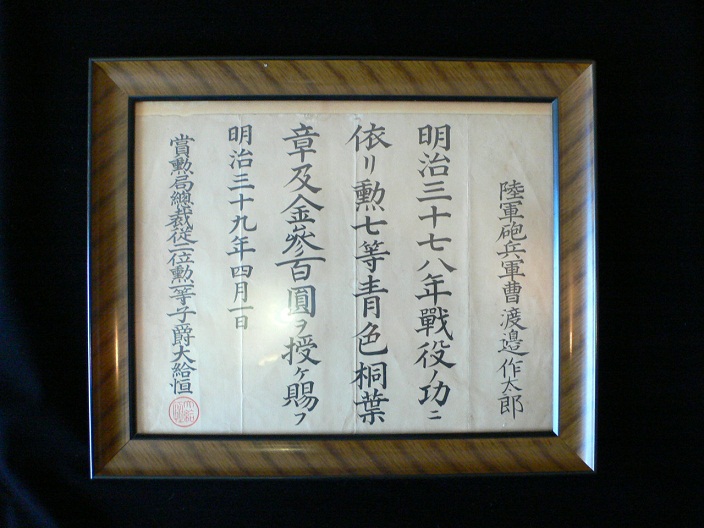 陸軍砲兵軍曹渡邉作太郎
明治三十七八年戰役ノ功ニ
依リ勲七等青色桐葉
章及金參百圓ヲ授ケ賜フ
明治三十九年四月一日
賞勲局總裁從二位勲一等子爵大給恒